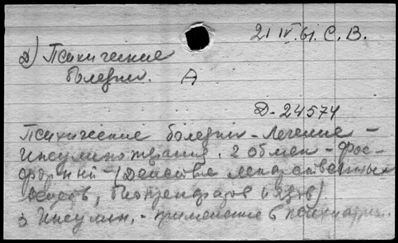 21 IV. 61. С. В.
2) Психические
болезни. А
Д-24574
Психические болезни - Лечение -
Инсулинотерапия. 2 Обмен - Фос-
форный - (Действие лекарственных
веществ, биопрепаратов и ядов)
3 Инсулин. - применение в психиатрии.